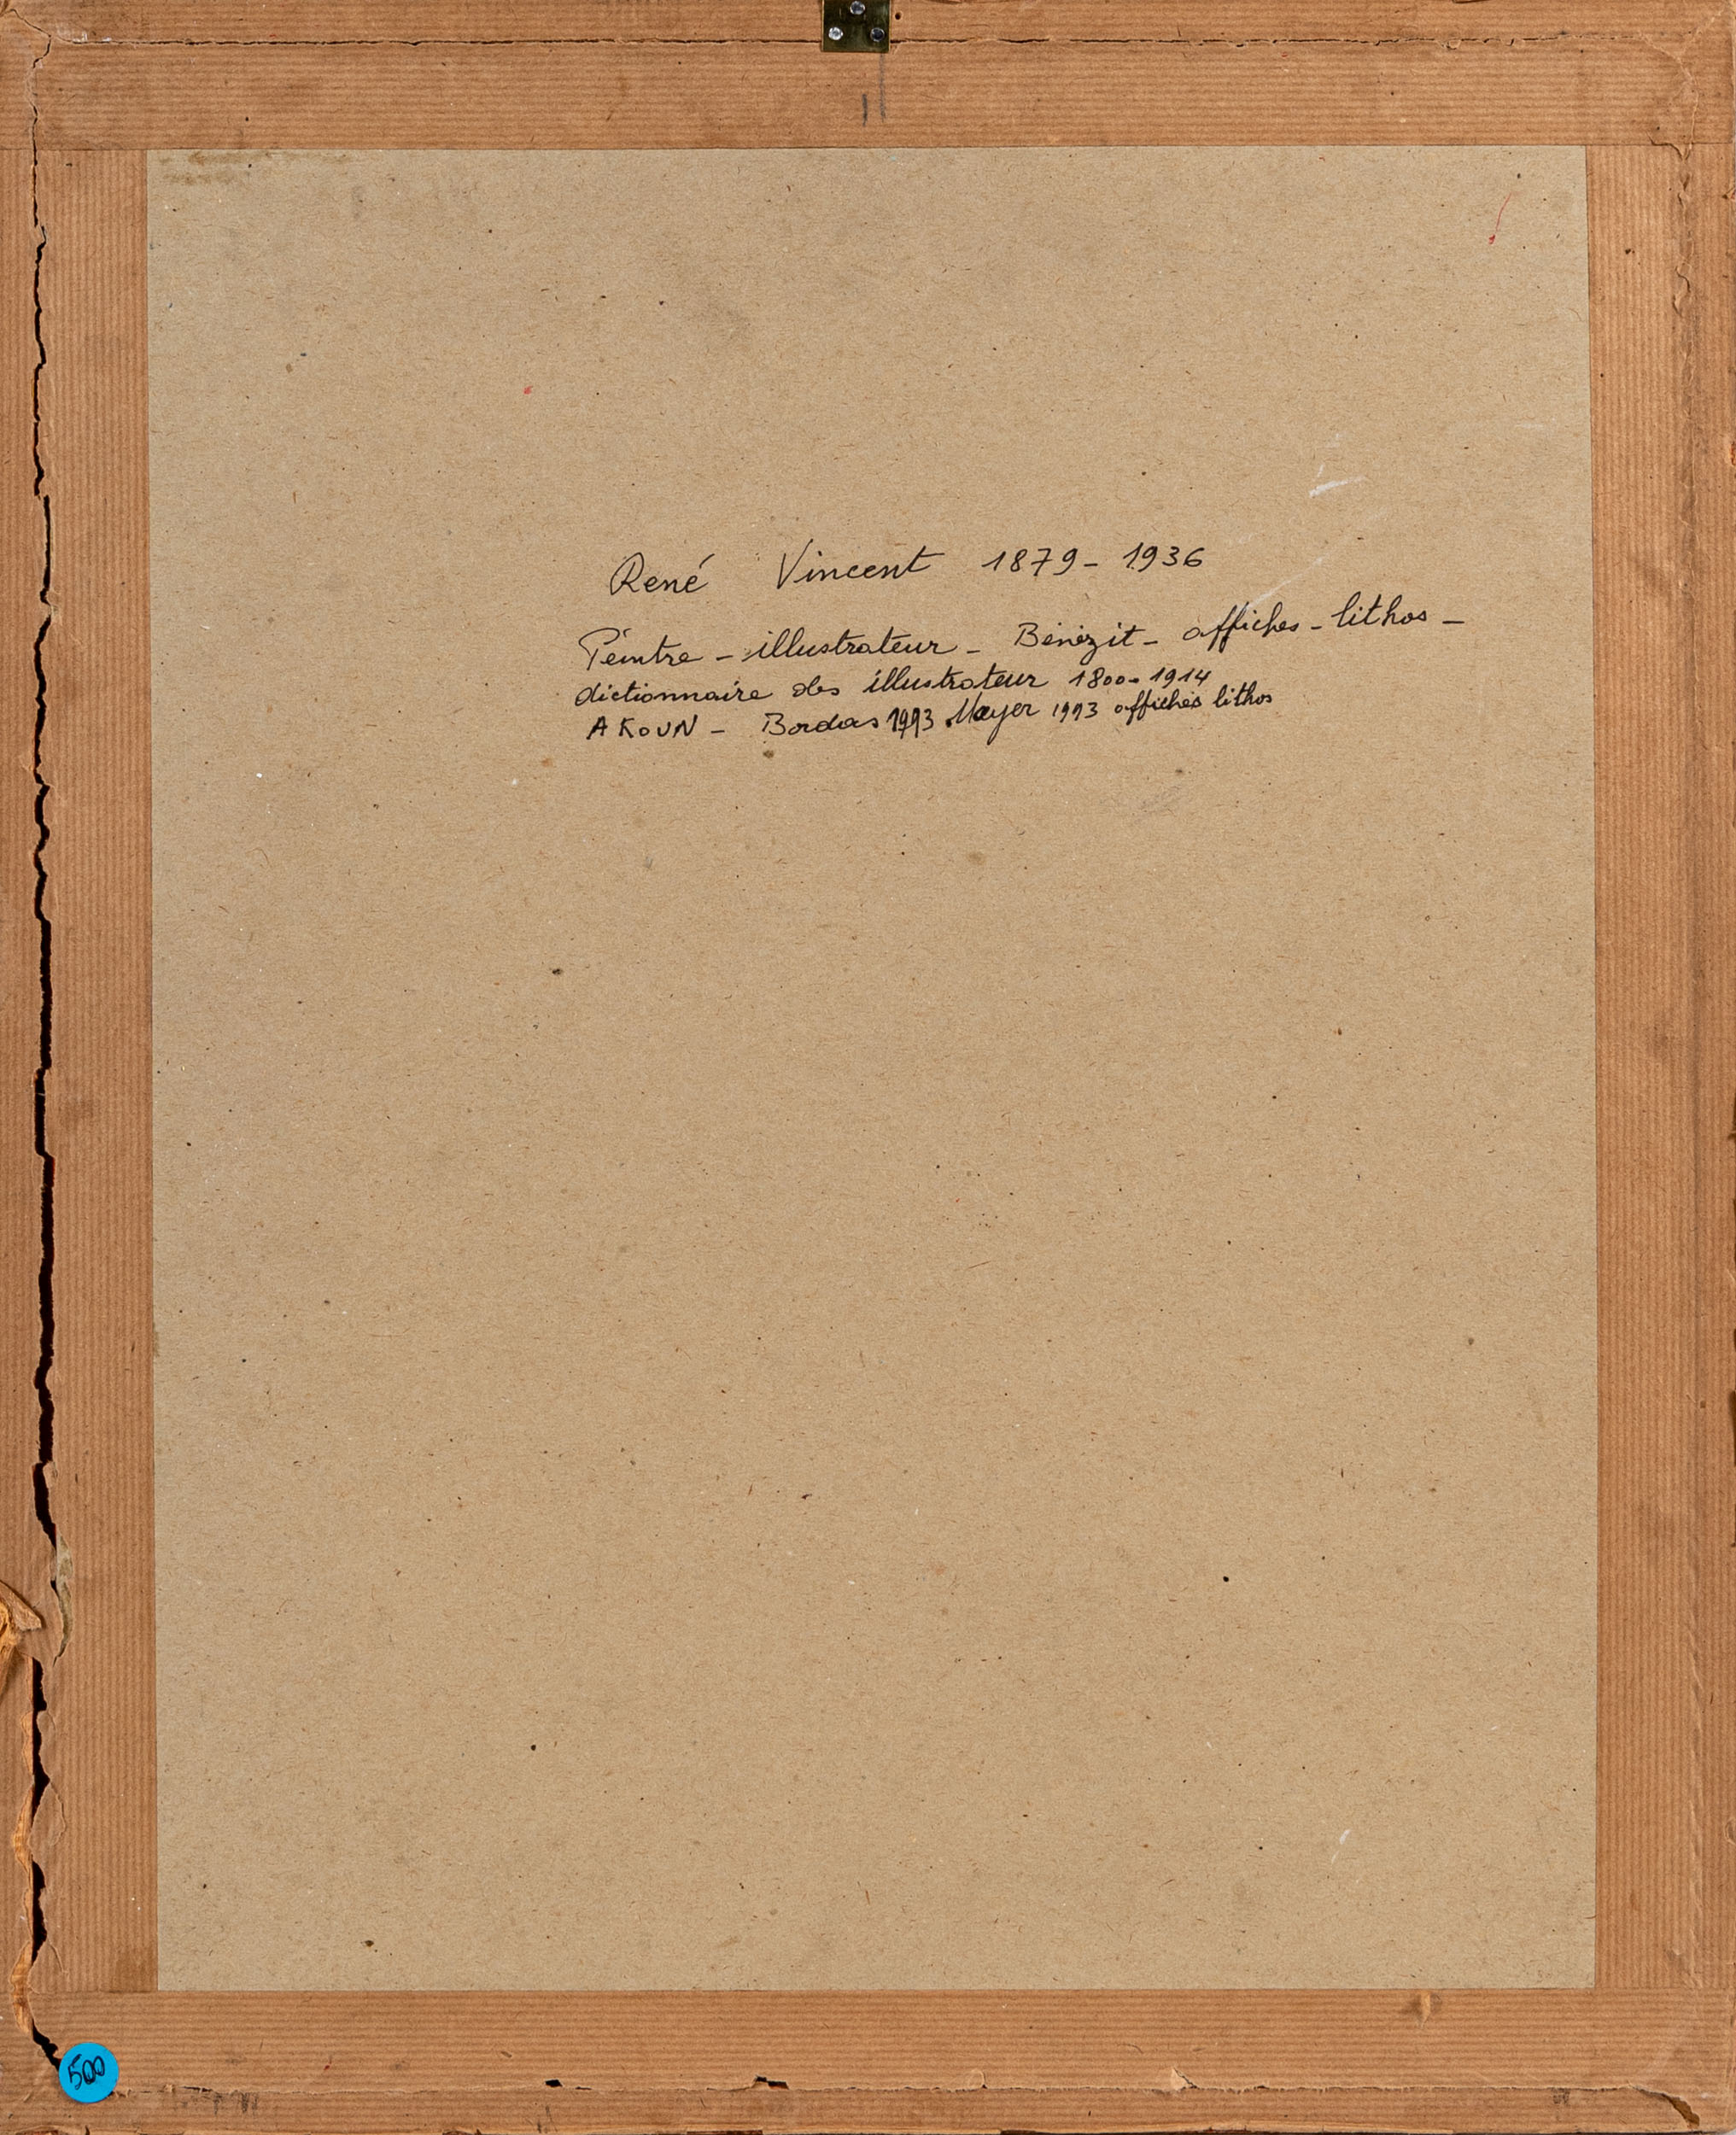 René Vincent 1879 - 1936
Peintre - illustrateur - Bénézit - affiches - lithos -
dictionnaire des illustrateur 1800 - 1914
AKOUN - Bordas 1993 Mayer 1993 affiches lithos
500